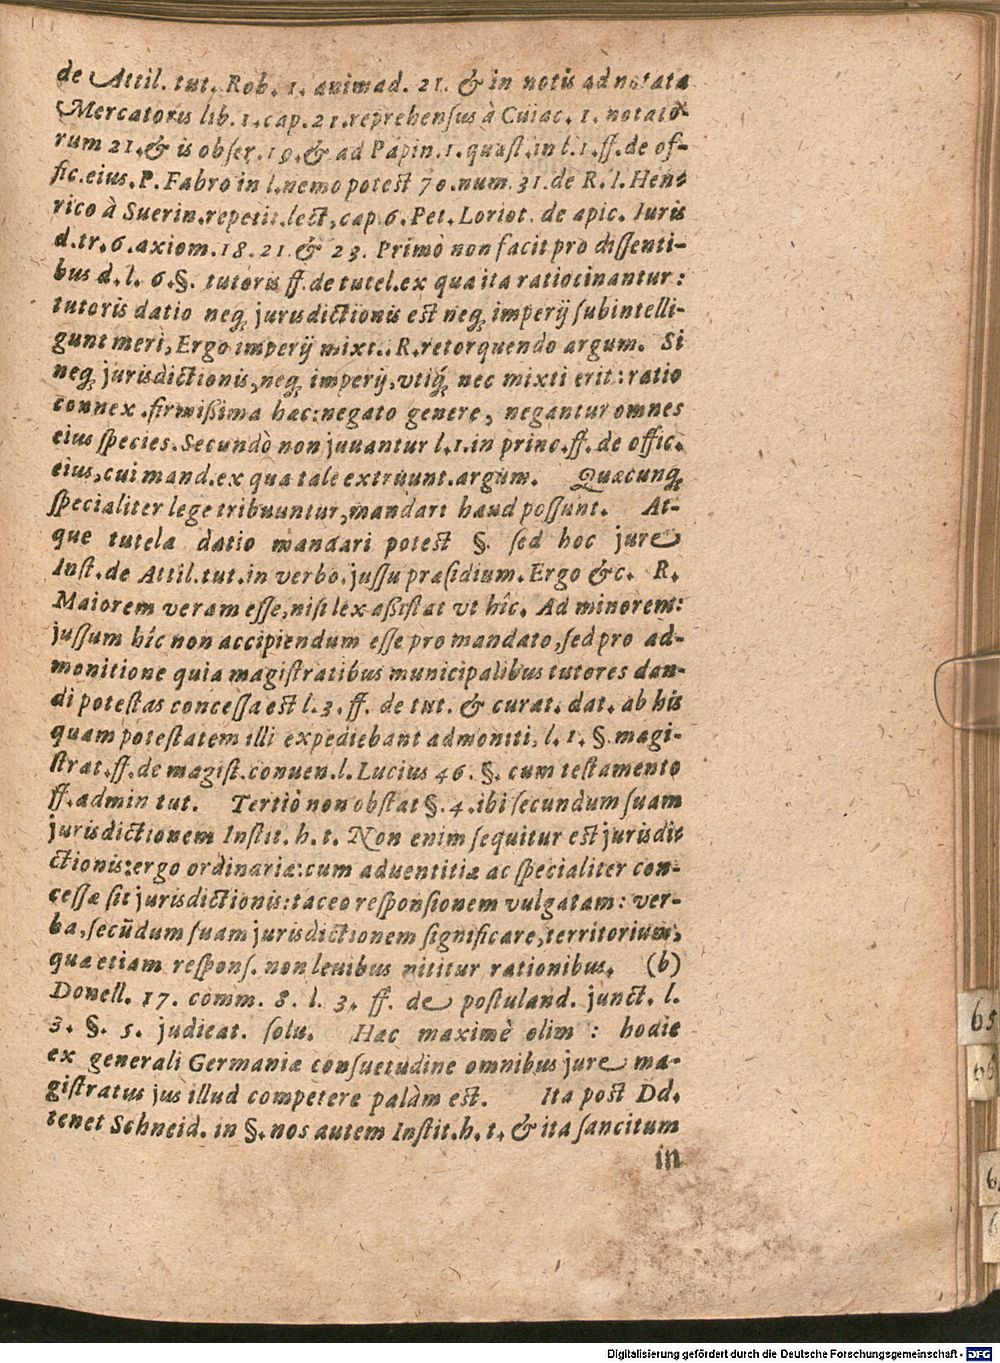 de Attil. tut. Rob. 1. animad. 21. & in notis ad notata
Mercatoris lib. 1. cap. 21. reprehensus à Cuiac. 1. notato-
rum 21. & is obser. 19. & ad Papin. 1. quæst. in l. 1. ff. de of-
fic. eius. P. Fabro in l. nemo potest 70. num. 31. de R. I. Hen-
rico à Suerin. repetit. lect, cap. 6. Pet. Loriot. de apic. Iuris
d. tr. 6. axiom. 18. 21. & 23. Primò non facit pro dissenti-
bus d. l. 6. §. tutoris ff. de tutel. ex qua ita ratiocinantur:
tutoris datio neq; jurisdictionis est neq; imperij subintelli-
gunt meri, Ergo imperij mixt.. R. retorquendo argum. Si
neq; jurisdictionis, neq; imperij, vtiq; nec mixti erit: ratio
connex. firmißima hac: negato genere, negantur omnes
eius species. Secundò non juuantur l. 1. in princ. ff. de offic.
eius, cui mand. ex qua tale extruunt. argum. Quæcunq;
specialiter lege tribuuntur, mandari haud possunt. At-
que tutela datio mandari potest §. sed hoc jure
Inst. de Attil. tut. in verbo. jussu præsidium. Ergo &c. R.
Maiorem veram esse, nisi lex aßistat vt hîc. Ad minorem:
jussum hîc non accipiendum esse pro mandato, sed pro ad-
monitione quia magistratibus municipalibus tutores dan-
di potestas concessa est l. 3. ff. de tut. & curat. dat. ab his
quam potestatem illi expediebant admoniti, l. 1. §. magi-
strat. ff. de magist. conuen. l. Lucius 46. §. cum testamento
ff. admin tut. Tertiò non obstat §. 4. ibi secundum suam
jurisdictionem Instit. h. t. Non enim sequitur est jurisdi-
ctionis: ergo ordinariæ: cum aduentitiæ ac specialiter con-
cessæ sit jurisdictionis: taceo responsionem vulgatam: ver-
ba, secūdum suam jurisdictionem significare, territorium,
quæ etiam respons. non leuibus nititur rationibus. (b)
Donell. 17. comm. 8. l. 3. ff. de postuland. junct. l.
3. §. 5. judicat. solu. Hac maximè olim : hodie
ex generali Germaniæ consuetudine omnibus jure ma-
gistratus jus illud competere palàm est. Ita post Dd.
tenet Schneid. in §. nos autem Instit. h. t. & ita sancitum
in
65
66
6
6
Digitalisierung gefördert durch die Deutsche Forschungsgemeinschaft - DFG